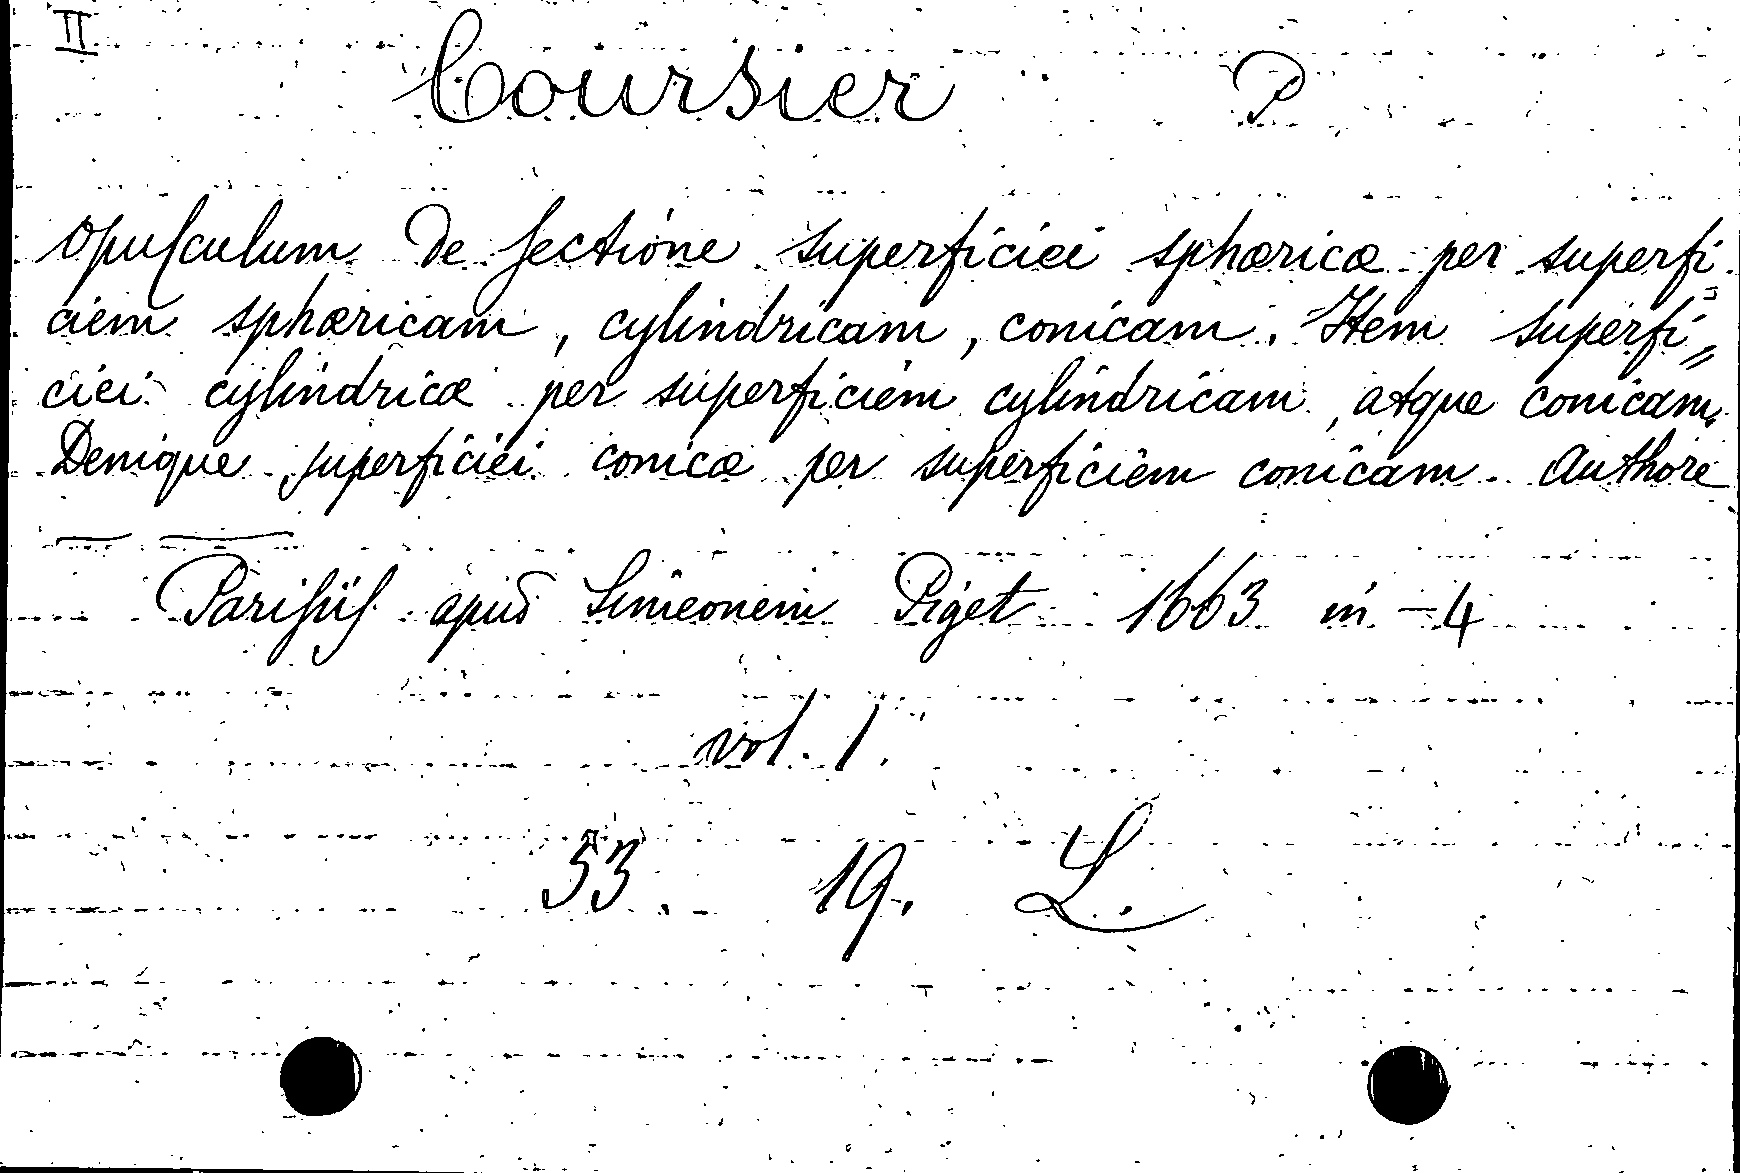 II
Coursier P
Opuſculum De ſectione superficiei sphæricæ per superfi-
ciem sphæricam, cylindricam, conicam. Item superfi„
ciei cylindricæ per superficiem cylindricam, atque conicam.
Denique superficiei conicæ per superficiem conicam. Authore
— —
Pariſiiſ apud Simeonem Piget 1663 in-4
vol. 1.
53. 19. L.